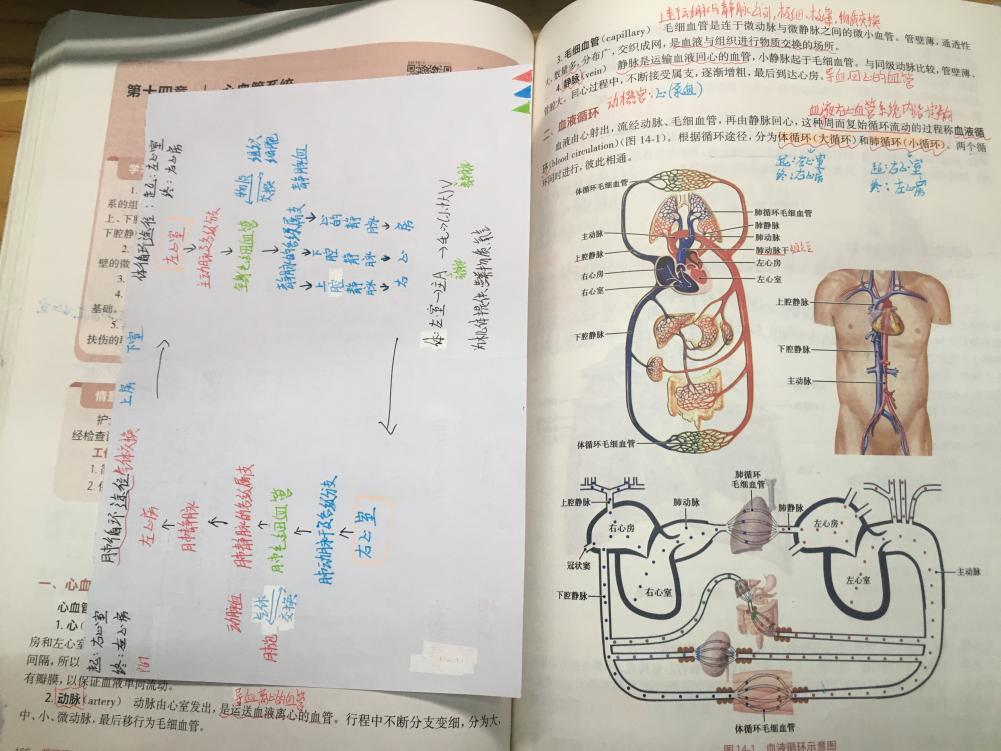 第十四章
心血管系统
系的组
上、下腔
下腔静脉
壁的微
基础。
扶伤的职
经检查
一、心血
心血管
1. 心(
房和左心室
间隔，所以
有瓣膜，以保证血液单向流动。
导血离心的血管
2. 动脉(artery) 动脉由心室发出，是运送血液离心的血管。行程中不断分支变细，分为大、
中、小、微动脉，最后移行为毛细血管。
体循环途径：起：左心室
终：右心房
左心室
主动脉及各级分支
全身毛细血管
物质
交换
组织
细胞
静脉血
静脉的各级属支
上腔静脉
下腔静脉
心的静脉
右心房
上房
下室
肺循环途径 气体交换
起：右心室
终：左心房
左心房
肺静脉
肺静脉的各级属支
肺毛细血管
肺动脉干及各级分支
右心室
动脉血
气体
交换
肺泡
连于动脉与静脉之间，极细、极薄，物质交换
3. 毛细血管(capillary) 毛细血管是连于微动脉与微静脉之间的微小血管。管壁薄，通透性
大，数量多，分布广，交织成网，是血液与组织进行物质交换的场所。
4. 静脉(vein) 静脉是运输血液回心的血管，小静脉起于毛细血管。与同级动脉比较，管壁薄、
管腔大，回心过程中，不断接受属支，逐渐增粗，最后到达心房。
导血回心的血管
动力器官：心(泵血)
二、血液循环
血液在心血管系统内循环流动
血液由心射出，流经动脉、毛细血管，再由静脉回心，这种周而复始循环流动的过程称血液循
环(blood circulation)(图 14-1)。根据循环途径，分为体循环(大循环)和肺循环(小循环)。两个循
环同时进行，彼此相通。
起：左心室
终：右心房
起：右心室
终：左心房
体循环毛细血管
肺循环毛细血管
肺静脉
主动脉
肺动脉
上腔静脉
肺动脉干
左心房
右心房
左心室
右心室
下腔静脉
体循环毛细血管
上腔静脉
下腔静脉
主动脉
肺循环
毛细血管
上腔静脉
肺动脉
肺静脉
右心房
左心房
冠状窦
主动脉
下腔静脉
右心室
左心室
体循环毛细血管
图 14-1 血液循环示意图